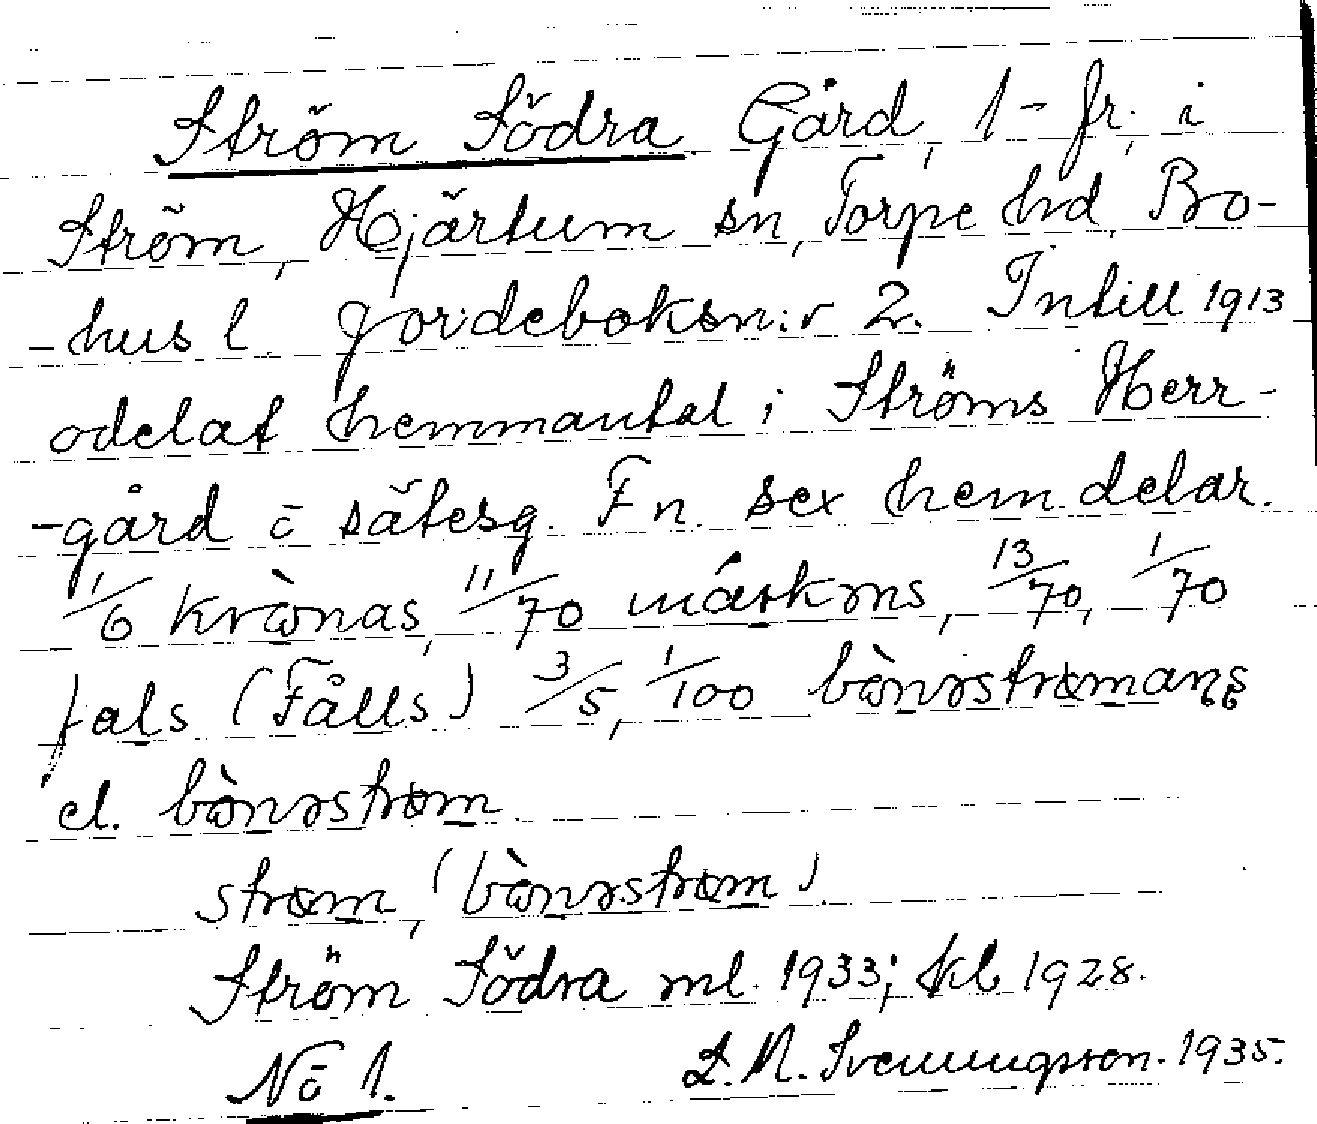 Ström Södra Gård, 1-fr; i
Ström, Hjärtum sn, Torpe hd, Bo-
-hus l. jordeboksn:r 2. Intill 1913
odelat hemmantal i Ströms Herr-
-gård o sätesg. Fn. sex hem. delar.
1/6 krònas, 11/70 , 13/70, 1/70
fals (Fålls) 3/5, 1/100
el. bònəstrøm
strøm, (bònəstrøm)
Ström Södra ml. 1933; kb 1928.
No 1. L. N. Svenungsson. 1935.